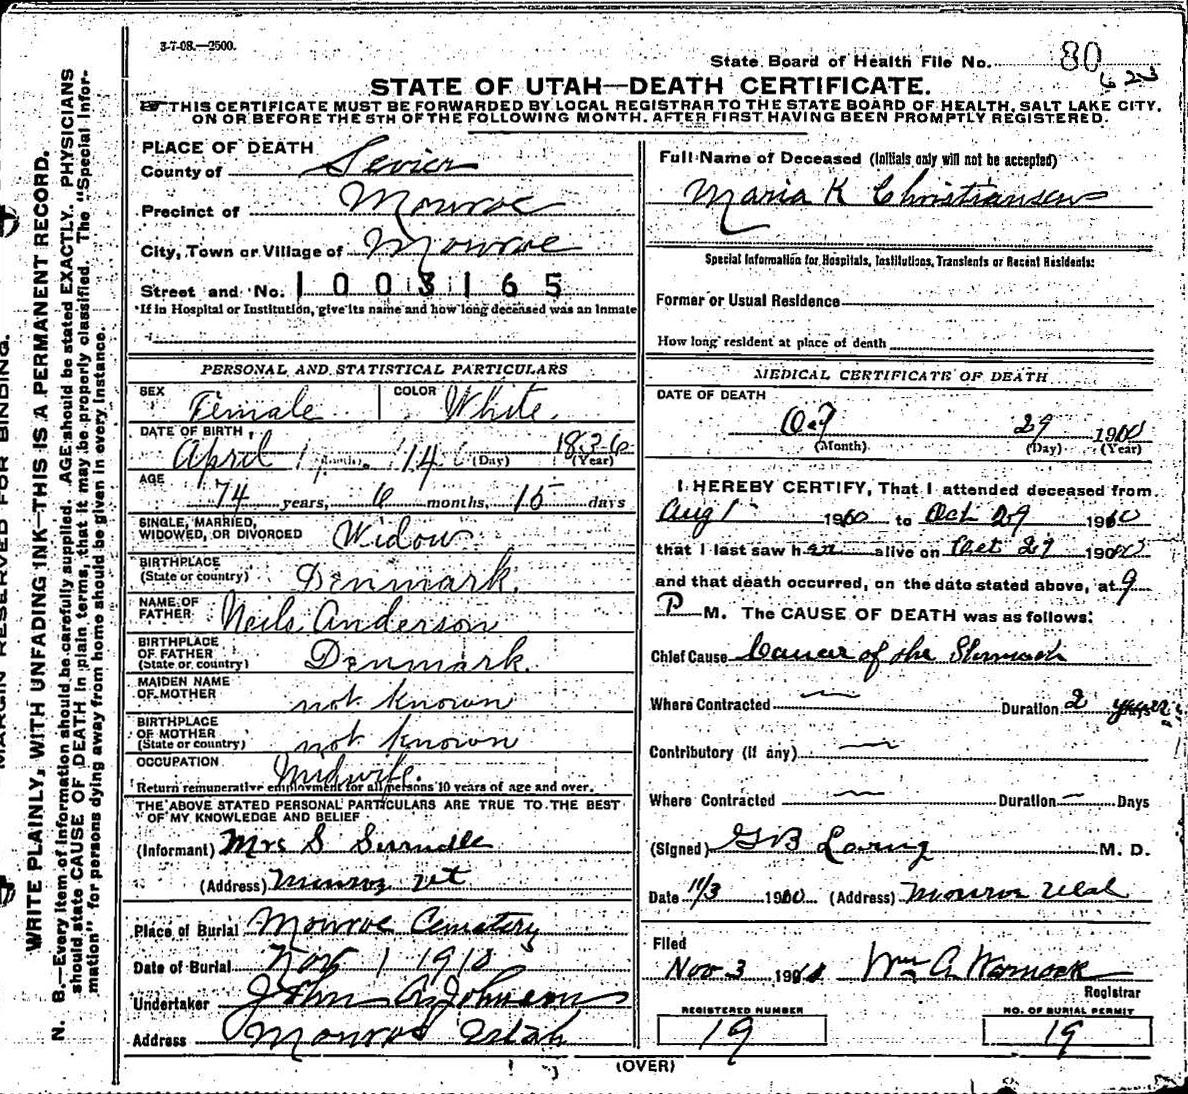 3-7-08.—2500.
State Board of Health File No. 80
623
STATE OF UTAH—DEATH CERTIFICATE.
THIS CERTIFICATE MUST BE FORWARDED BY LOCAL REGISTRAR TO THE STATE BOARD OF HEALTH, SALT LAKE CITY,
ON OR BEFORE THE 5TH OF THE FOLLOWING MONTH, AFTER FIRST HAVING BEEN PROMPTLY REGISTERED.
PLACE OF DEATH
County of Sevier
Precinct of Monroe
City, Town or Village of Monroe
Street and No. 1003165
*If in Hospital or Institution, give its name and how long deceased was an inmate
PERSONAL AND STATISTICAL PARTICULARS
SEX Female COLOR White
DATE OF BIRTH
April (Month) 14 (Day) 1836 (Year)
AGE
74 years, 6 months, 15 days
SINGLE, MARRIED,
WIDOWED, OR DIVORCED Widow
BIRTHPLACE
(State or country) Denmark.
NAME OF
FATHER Neils Anderson
BIRTHPLACE
OF FATHER
(State or country) Denmark.
MAIDEN NAME
OF MOTHER not known
BIRTHPLACE
OF MOTHER
(State or country) not known
OCCUPATION Midwife.
Return remunerative employment for all persons 10 years of age and over.
THE ABOVE STATED PERSONAL PARTICULARS ARE TRUE TO THE BEST
OF MY KNOWLEDGE AND BELIEF
(Informant) Mrs S
(Address) Monroe Ut
Place of Burial Monroe Cemetery
Date of Burial Nov 1 1910
Undertaker John A. Johnson
Address Monroe Utah
Full Name of Deceased (Initials only will not be accepted)
Maria K Christiansen
Special Information for Hospitals, Institutions, Transients or Recent Residents:
Former or Usual Residence
How long resident at place of death
MEDICAL CERTIFICATE OF DEATH
DATE OF DEATH
Oct 29 1910
(Month) (Day) (Year)
I HEREBY CERTIFY, That I attended deceased from
Aug 1 1910 to Oct 29 1910
that I last saw her alive on Oct 29 1910
and that death occurred, on the date stated above, at 9
P M. The CAUSE OF DEATH was as follows:
Chief Cause Cancer of the Stomach
Where Contracted — Duration 2 years
Contributory (if any) —
Where Contracted — Duration — Days
(Signed) G B Loring M. D.
Date 11/3 1910 (Address) Monroe Utah
Filed
Nov 3 1910 Wm A Warnock
Registrar
REGISTERED NUMBER
19
NO. OF BURIAL PERMIT
19
(OVER)
MARGIN RESERVED FOR BINDING.
WRITE PLAINLY, WITH UNFADING INK—THIS IS A PERMANENT RECORD.
N. B.—Every item of information should be carefully supplied. AGE should be stated EXACTLY. PHYSICIANS
should state CAUSE OF DEATH in plain terms, that it may be properly classified. The "Special Infor-
mation" for persons dying away from home should be given in every instance.